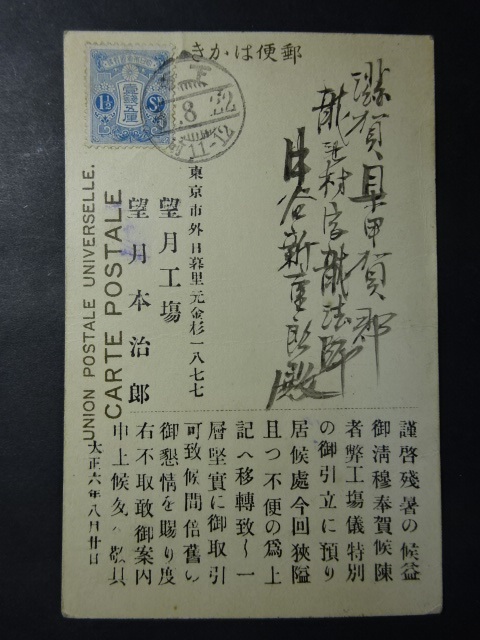 郵便はかき
壹錢五厘
1½ Sn
8
22
11-12
滋賀縣甲賀郡
龍池村字龍法師
殿
東京市外日暮里元金杉一八七七
望月工塲
望月本治郎
UNION POSTALE UNIVERSELLE.
CARTE POSTALE
謹啓殘暑の候益
御淸穆奉賀候陳
者弊工塲儀特別
の御引立に預り
居候處今回狹隘
且つ不便の爲上
記へ移轉致し一
層堅實に御取引
可致候間倍舊の
御懇情を賜り度
右不取敢御案內
申上候 敬具
大正六年八月廿日